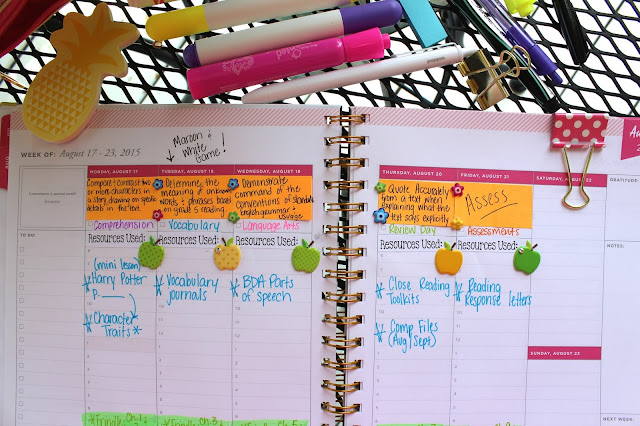 WEEK OF: August 17 - 23, 2015
Maroon &
White
Game!
MONDAY, AUGUST 17
TUESDAY, AUGUST 18
WEDNESDAY, AUGUST 19
Compare & contrast two
or more characters in
a story, drawing on specific
details in the text.
Determine the
meaning of unknown
words & phrases based
on grade 5 reading
Demonstrate
command of the
conventions of Standard
English grammar &
usage
Comprehension
Vocabulary
Language Arts
Resources Used:
Resources Used:
Resources Used:
TO DO:
(mini lesson)
Harry Potter
p.
Character
Traits
Vocabulary
journals
BDA Parts
of speech
Ch. 1
Ch. 3
Ch. 5
THURSDAY, AUGUST 20
FRIDAY, AUGUST 21
SATURDAY, AUGUST 22
Quote Accurately
from a text when
explaining what the
text says explicitly
Assess
Review Day
Assessments
Resources Used:
Resources Used:
Close Reading
Toolkits
Comp Files
(Aug/Sept)
Reading
Response letters
SUNDAY, AUGUST 23
GRATITUDE:
NOTES:
NEXT WEEK: